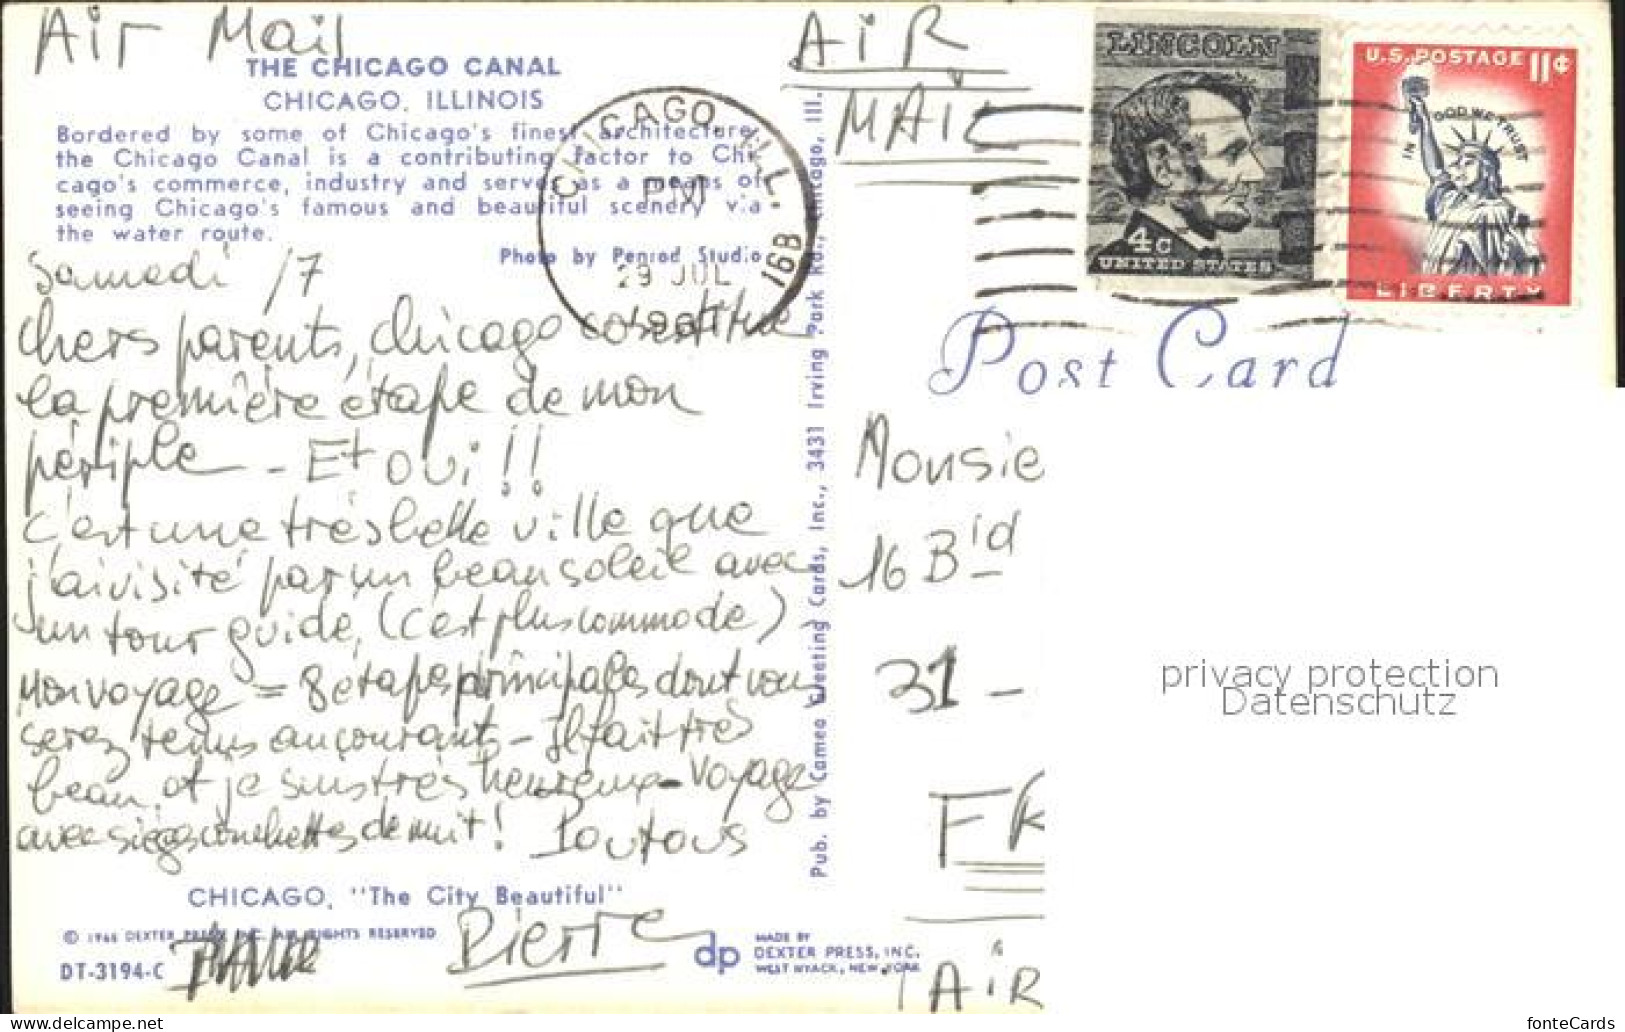 Air Mail
THE CHICAGO CANAL
CHICAGO, ILLINOIS
Bordered by some of Chicago's finest architecture,
the Chicago Canal is a contributing factor to Chi-
cago's commerce, industry and serves as a means of
seeing Chicago's famous and beautiful scenery via
the water route.
Photo by Penrod Studio
CHICAGO, ILL.
PM
29 JUL
16B
Samedi /7
chers parents, chicago constitue
la première étape de mon
périple - Et oui!!
c'est une très belle ville que
j'ai visité par un beau soleil avec
un tour guide, (c'est plus commode) -
Mon voyage = 8 étapes principales dont vous
serez tenus au courant - Il fait très
beau, et je suis très heureux - Voyage
avec sièges couchettes de nuit! Poutous
Pierre
CHICAGO, "The City Beautiful"
© 1966 DEXTER PRESS, INC. ALL RIGHTS RESERVED
DT-3194-C
dp
MADE BY
DEXTER PRESS, INC.
WEST NYACK, NEW YORK
Pub. by Cameo Greeting Cards, Inc., 3431 Irving Park Rd., Chicago, Ill.
AiR
MAiL
LINCOLN
4c
UNITED STATES
U.S. POSTAGE 11¢
IN GOD WE TRUST
LIBERTY
Post Card
Monsie
16 B
31 -
FR
AiR
privacy protection
Datenschutz
www.delcampe.net
fonteCards